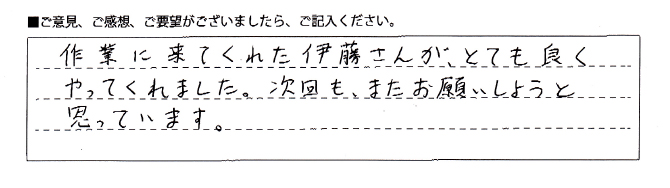 ■ご意見、ご感想、ご要望がございましたら、ご記入ください。
作業に来てくれた伊藤さんが、とても良く
やってくれました。次回も、またお願いしようと
思っています。